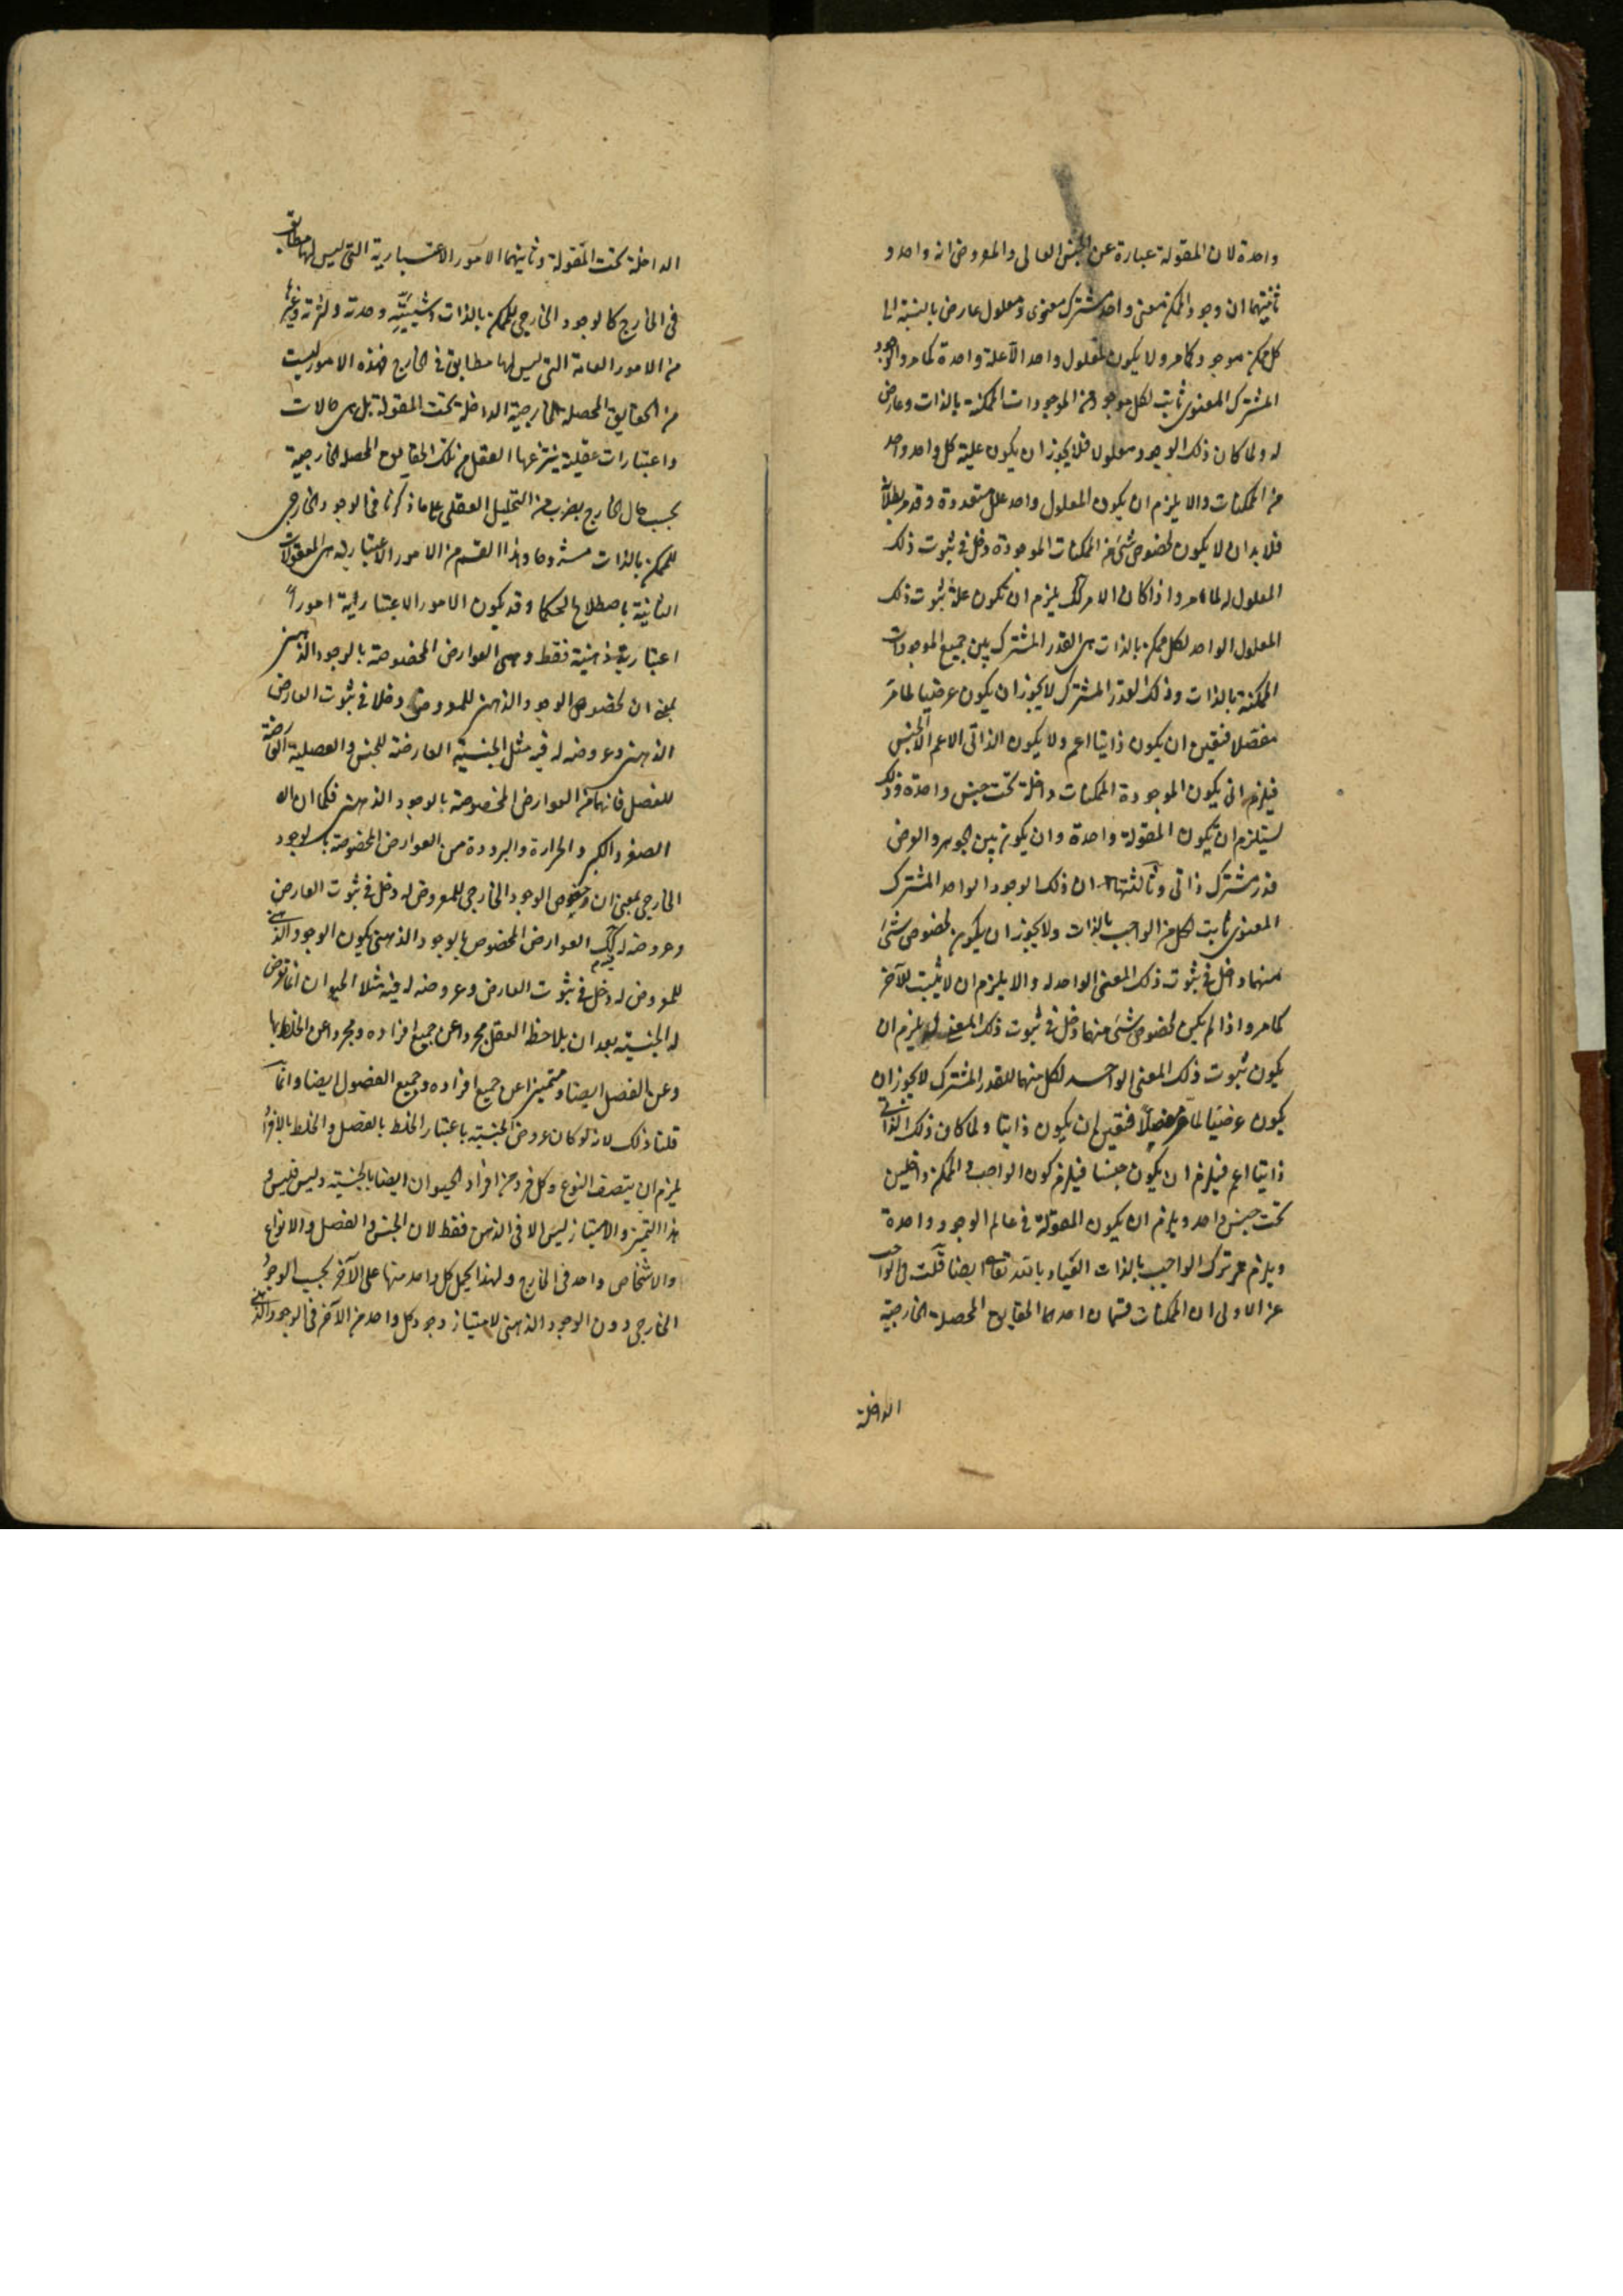 واحدة لان المقولة عبارة عن الجنس العالى والمفروض انه واحد و
ثانيتهما ان وجود الممكن معنى واحد مشترك معنوى ومعلول عارض بالنسبة الى
كل ممكن موجود كما مر ولا يكون لمعلول واحد الا علة واحدة كما مر والوجود
المشترك المعنوى ثابت لكل موجود من الموجودات الممكنة بالذات وعارض
له ولما كان ذلك الوجود معلولا فلا يجوز ان يكون علية كل واحد واحد
من الممكنات والا يلزم ان يكون المعلول واحد علل متعددة وقد مر بطلانه
فلا بد ان لا يكون لخصوص شئ من الممكنات الموجودة دخل فى ثبوت ذلك
المعلول له لما مر واذا كان الامر كك يلزم ان تكون علة ثبوت ذلك
المعلول الواحد لكل ممكن بالذات هى القدر المشترك بين جميع الموجودات
الممكنة بالذات وذلك القدر المشترك لا يجوز ان يكون عرضيا لما مر
مفصلا فتعين ان يكون ذاتيا اعم ولا يكون الذاتى الاعم الا الجنس
فيلزم ان يكون الموجودة الممكنات داخلة تحت جنس واحدة وذلك
يستلزم ان يكون المقولة واحدة وان يكون بين الجوهر والعرض
قدر مشترك ذاتى وثالثتها ان ذلك الوجود الواحد المشترك
المعنوى ثابت لكل من الواجب بالذات ولا يجوز ان يكون لخصوص شئ
منهما دخل فى ثبوت ذلك المعنى الواحد له والا يلزم ان لا يثبت للآخر
كما مر واذا لم يكن لخصوص شئ منهما دخل فى ثبوت ذلك المعنى له يلزم ان
يكون ثبوت ذلك المعنى الواحد لكل منهما للقدر المشترك لا يجوز ان
يكون عرضيا لما مر مفصلا فتعين ان يكون ذاتيا ولما كان ذلك الذاتى
ذاتيا اعم فيلزم ان يكون جنسا فيلزم كون الواجب والممكن داخلين
تحت جنس واحد ويلزم ان يكون المقولة فى عالم الوجود واحدة
ويلزم تركب الواجب بالذات العياذ بالله تعالى ايضا قلت فى الجواب
عن الاولى ان الممكنات قسمان احدهما الحقايق المحصلة الخارجية
الداخلة
الداخلة تحت المقولة وثانيتهما الامور الاعتبارية التى ليس لها مطابق
فى الخارج كالوجود الخارجى للممكن بالذات وشيئيته وحدته وكثرته وغيرها
من الامور العامة التى ليس لها مطابق فى الخارج فهذه الامور ليست
من الحقايق المحصلة الخارجية الداخلة تحت المقولة بل هى حالات
واعتبارات عقلية ينتزعها العقل من تلك الحقايق المحصلة الخارجية
بحسب حال الخارج بضرب من التحليل العقلى على ما ذكرنا فى الوجود الخارجى
للممكن بالذات مشروحا وهذا القسم من الامور الاعتبارية هى المعقولات
الثانية باصطلاح الحكما وقد يكون الامور الاعتبارية امورا
اعتبارية ذهنية فقط وهى العوارض المخصوصة بالوجود الذهنى
بمعنى ان لخصوص الوجود الذهنى للمعروض دخلا فى ثبوت العارض
الذهنى وعروضه له فيه مثل الجنسية العارضة للجنس والفصلية العارضة
للفصل فانهما من العوارض المخصوصة بالوجود الذهنى فكما ان
الصغر والكبر والحرارة والبرودة من العوارض المخصوصة بالوجود
الخارجى بمعنى ان خصوص الوجود الخارجى للمعروض له دخل فى ثبوت العارض
وعروضه له كك العوارض المخصوص بالوجود الذهنى يكون الوجود الذهنى
للمعروض له دخل فى ثبوت العارض وعروضه له فيه مثلا الحيوان انما تعرض
له الجنسية بعد ان يلاحظ العقل مجردا عن جميع افراده ومجردا عن الخلط بها
وعن الفصل ايضا ومتميزا عن جميع افراده وجميع الفصول ايضا وانما
قلنا ذلك لانه لو كان عروض الجنسية باعتبار الخلط بالفصل والخلط بالافراد
يلزم ان يتصف النوع وكل فرد من افراد الحيوان ايضا بالجنسية وليس فليس
هذا التميز والامتياز ليس الا فى الذهن فقط لان الجنس والفصل والانواع
والاشخاص واحد فى الخارج ولهذا يحمل كل واحد منها على الآخر بحسب الوجود
الخارجى دون الوجود الذهنى لامتياز وجود كل واحد من الآخر فى الوجود الذهنى